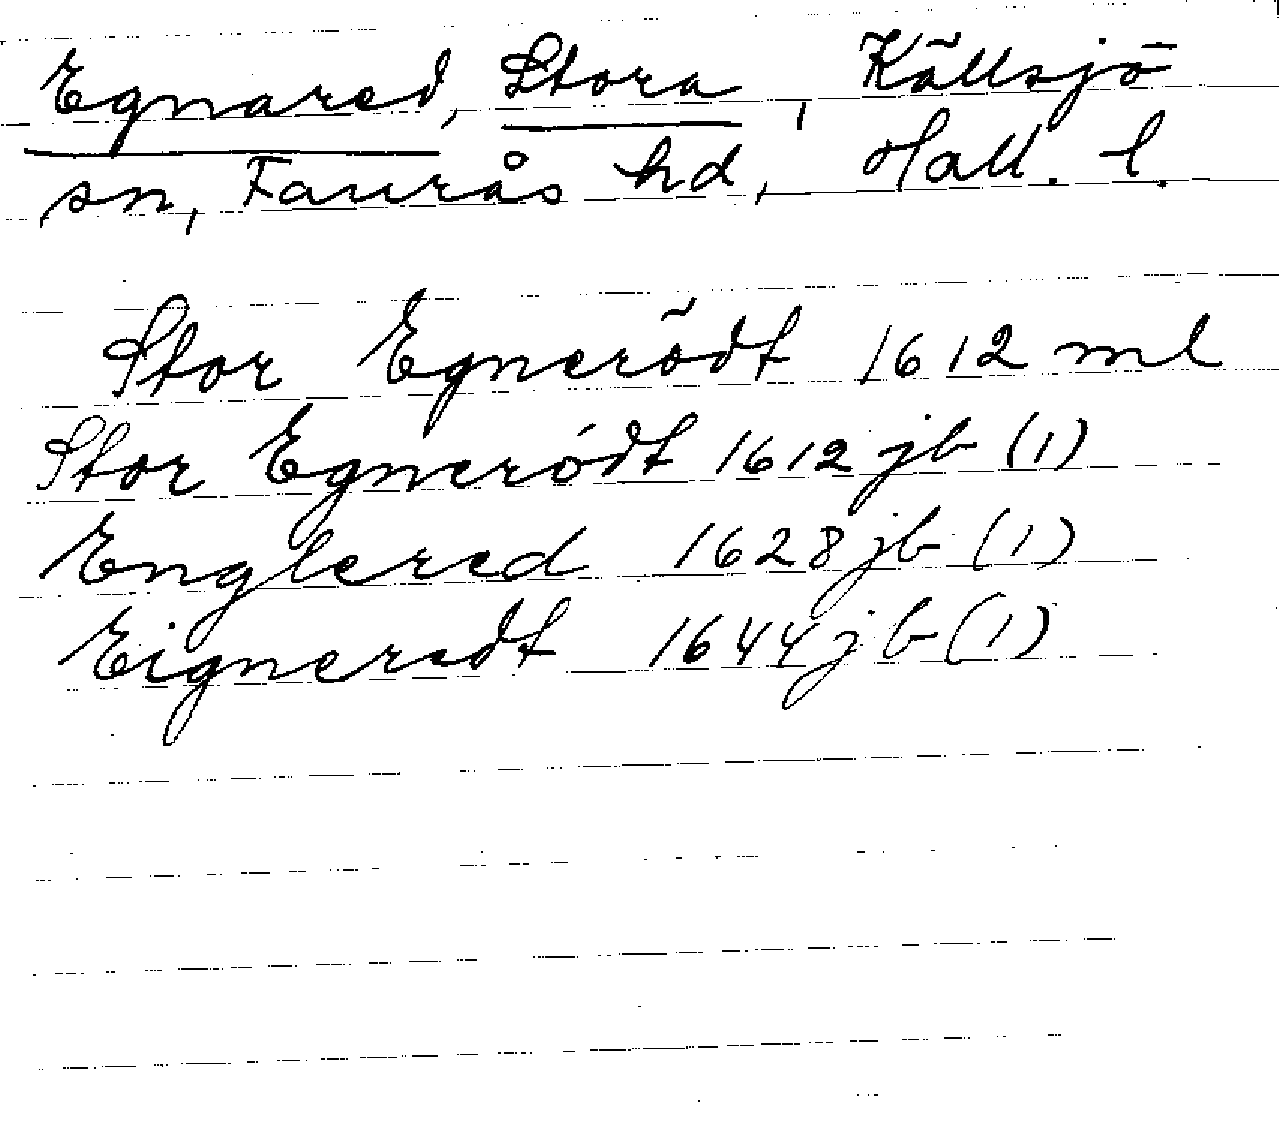 Egnared, Stora, Källsjö
sn, Faurås hd, Hall. l.
Stor Egnerödt 1612 ml
Stor Egneródt 1612 jb (1)
Englered 1628 jb (1)
Eigneredt 1644 jb (1)